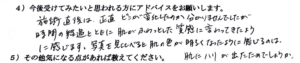 4）今後受けてみたいと思われる方にアドバイスをお願いします。
施術直後は、正直 どこが変化したか分かりませんでしたが
時間の経過とともに 肌がふわっとした実感に変わってきたよう
に感じます。写真を見比べると 肌の色が明るくなったように感じるのは、
5）その他気になる点があれば教えてください。 肌にハリが出たためでしょうか。